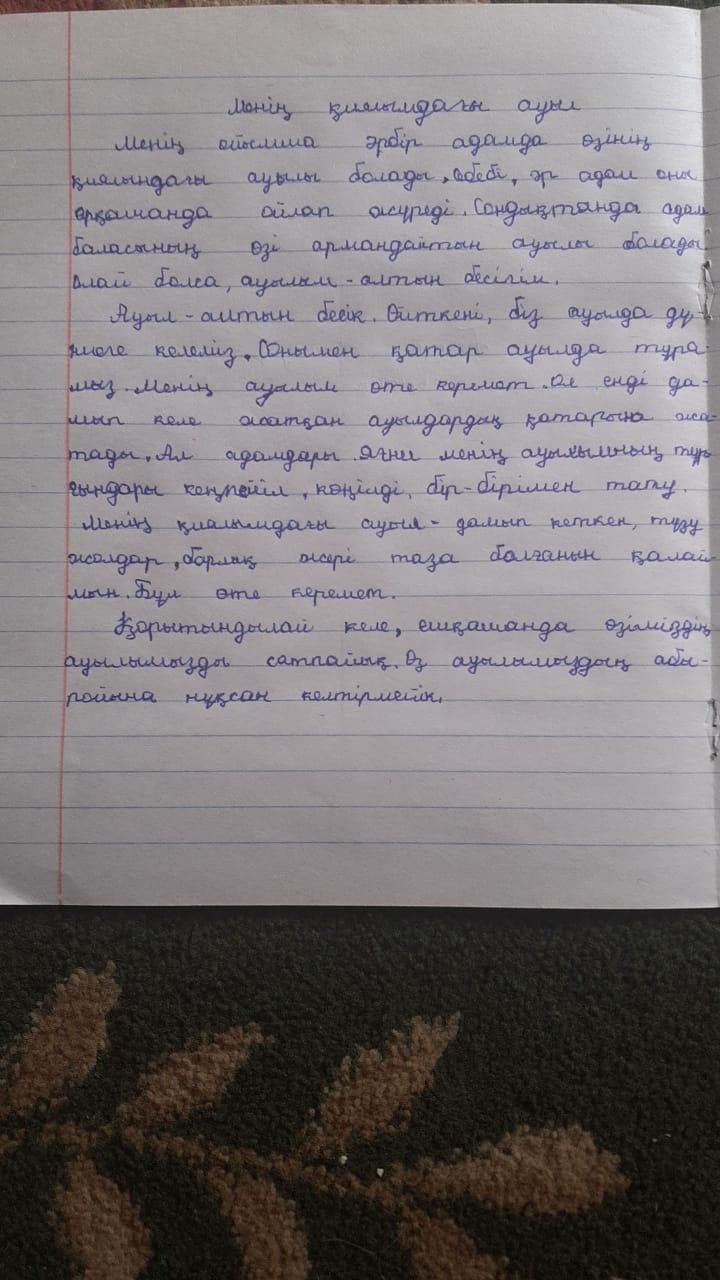 Менің қиялымдағы ауыл
Менің ойымша әрбір адамда өзінің
қиялындағы ауылы болады, себебі, әр адам оны
әрқашанда ойлап жүреді. Сондықтанда адам
баласының өзі армандайтын ауылы болады
Олай болса, ауылым - алтын бесігім.
Ауыл - алтын бесік. Өйткені, біз ауылда дү-
ниеге келеміз. Сонымен қатар ауылда тұра-
мыз. Менің ауылым өте керемет. Ол енді да-
мып келе жатқан ауылдардың қатарына жа-
тады. Ал адамдары яғни менің ауылымның тұр-
ғындары кеңпейіл, көңілді, бір-бірімен тату.
Менің қиялымдағы ауыл - дамып кеткен, түзу
жолдар, барлық жері таза болғанын қалай-
мын. Бұл өте керемет.
Қорытындылай келе, ешқашанда өзіміздің
ауылымызды сатпайық. Өз ауылымыздың абы-
ройына нұқсан келтірмейік.